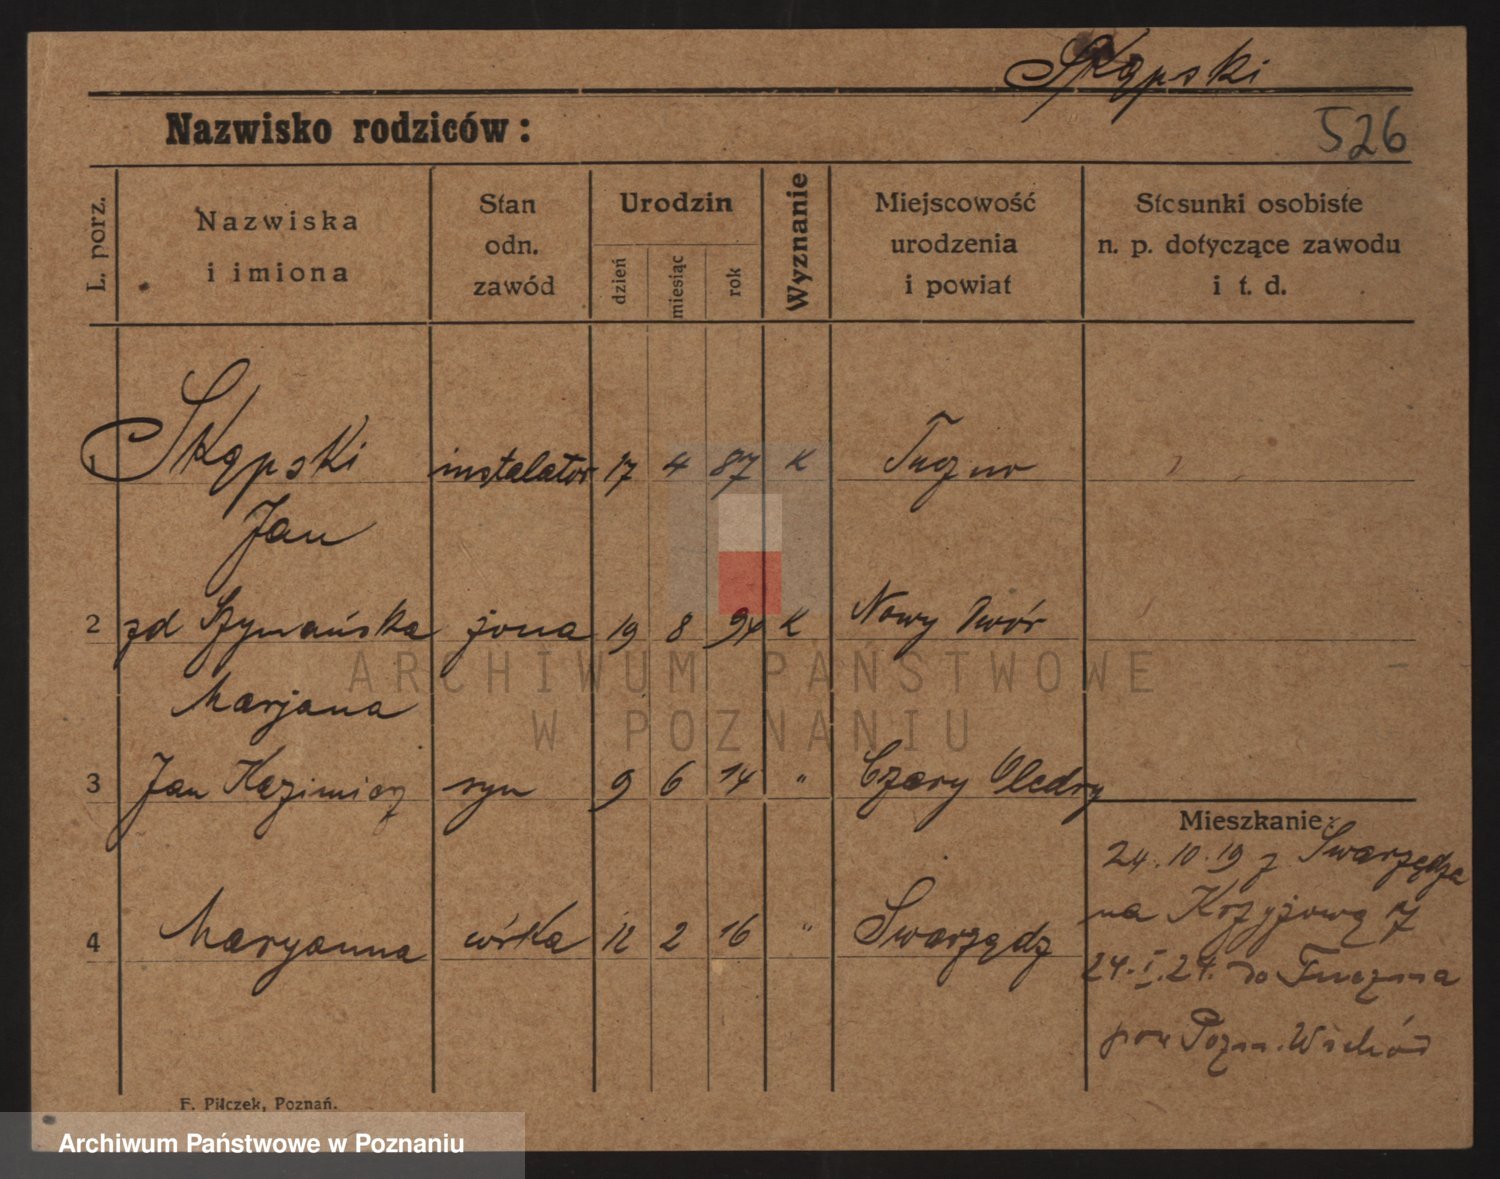 Skąpski
Nazwisko rodziców:
526
L. porz.
Nazwiska
i imiona
Stan
odn.
zawód
Urodzin
dzień
miesiąc
rok
Wyznanie
Miejscowość
urodzenia
i powiat
Stosunki osobiste
n. p. dotyczące zawodu
i t. d.
1 Skąpski instalator 17 4 87 K
Jan
2 zd Szymańska żona 19 8 94 K Nowy Dwór
Marjana
3 Jan Kazimierz syn 9 6 14 " Czary Oledry
4 Maryanna córka 12 2 16 " Swarzędz
Mieszkanie:
24.10.19 z Swarzędza
na Krzyżową 7
24.I.24. do
pow Pozn. Wschód
F. Pilczek, Poznań.
ARCHIWUM PAŃSTWOWE
W POZNANIU
Archiwum Państwowe w Poznaniu